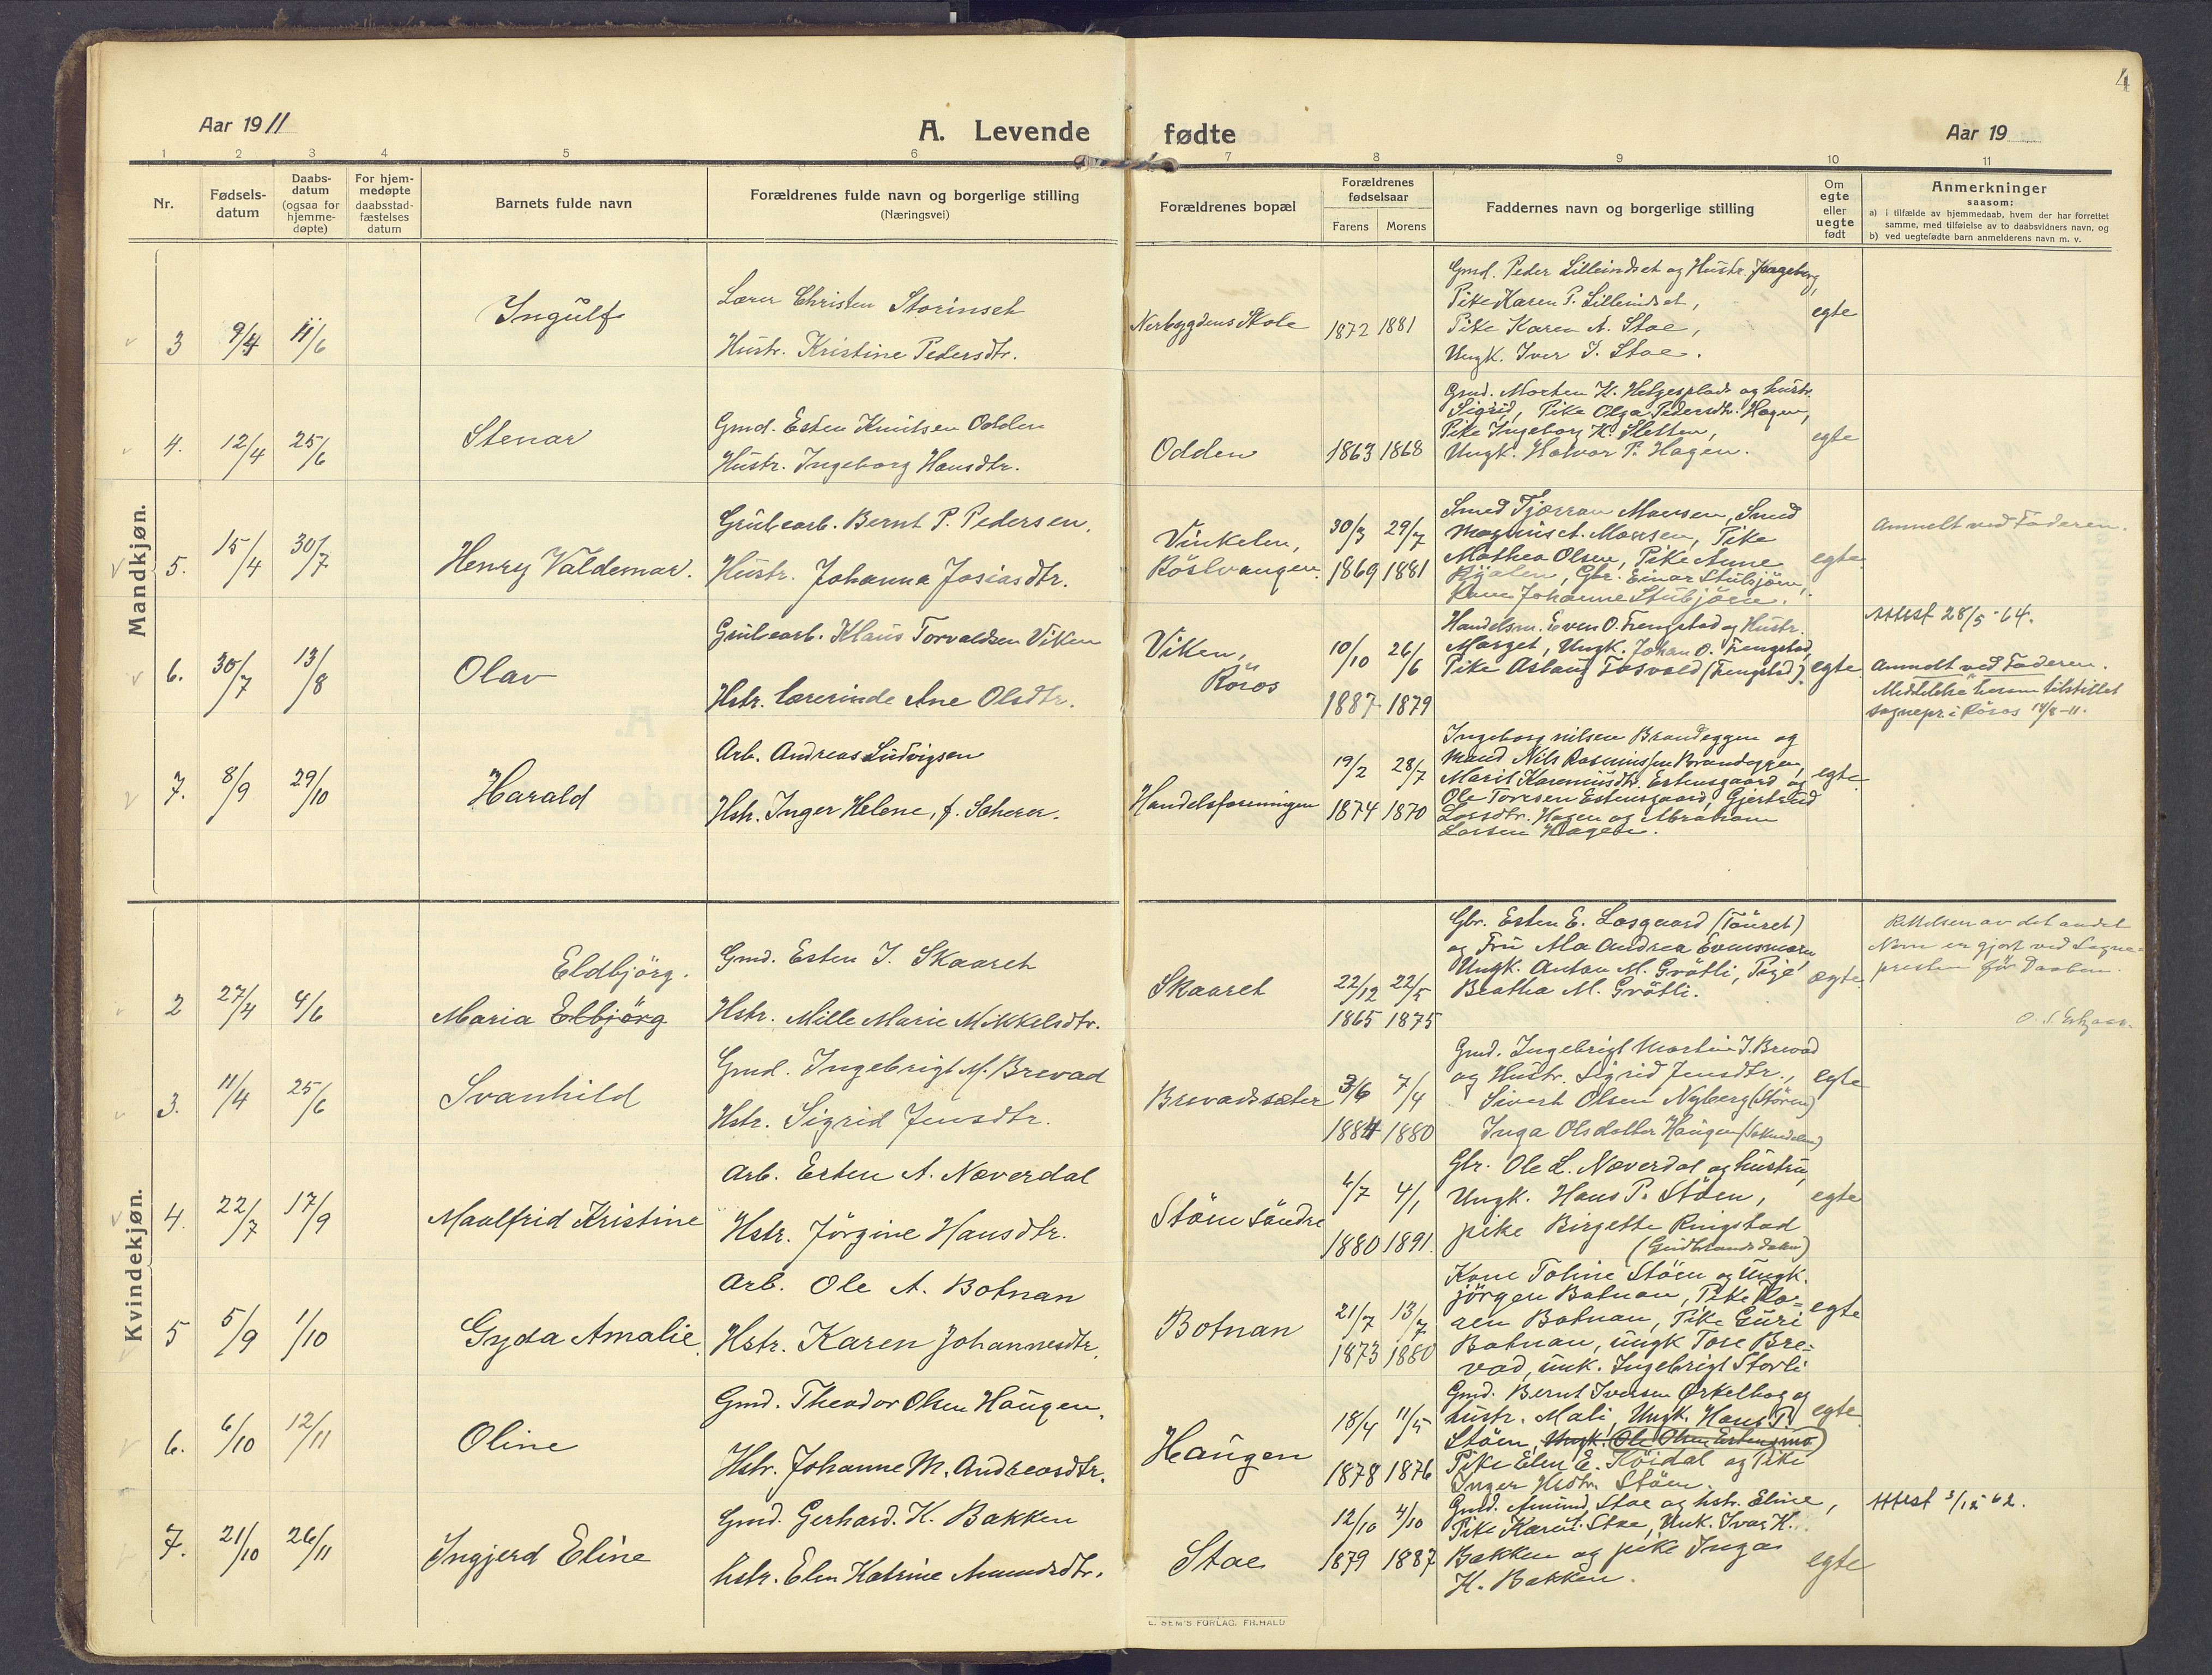 4
Aar 1911
A. Levende
fødte
Aar 19
1 2 3 4 5 6 7 8 9 10 11
Nr.
Fødsels-
datum
Daabs-
datum
(ogsaa for
hjemme-
døpte)
For hjem-
medøpte
daabsstad-
fæstelses
datum
Barnets fulde navn
Forældrenes fulde navn og borgerlige stilling
(Næringsvei)
Forældrenes bopæl
Forældrenes
fødselsaar
Farens Morens
Faddernes navn og borgerlige stilling
Om
egte
eller
uegte
født
Anmerkninger
saasom:
a) i tilfælde av hjemmedaab, hvem der har forrettet
samme, med tilføielse av to daabsvidners navn, og
b) ved uegtefødte barn anmelderens navn m. v.
Mandkjøn.
3 9/4 11/6
Ingulf
Lærer Christen Storinset
Hustr. Kristine Pedersdtr.
Nerbygdens Skole
1872 1881
Gmd. Peder Lilleindset og Hustr. Ingeborg,
Pike Karen P. Lilleindset,
Pike Karen A. Stoe,
Ungk. Iver I. Stoe.
egte
4. 12/4 25/6
Stenar
Gmd. Esten Knutsen Odden
Hustr. Ingeborg Hansdtr.
Odden
1863 1868
Gmd. Morten K. Helgesplads og hustr.
Sigrid, Pike Olga Pedersdtr. Hagen,
Pike Ingeborg K. Sletten,
Ungk. Halvor P. Hagen.
egte
5. 15/4 30/7
Henry Valdemar.
Grubearb. Bernt P. Pedersen.
Hustr. Johanna Josiasdtr.
Vinkelen,
Röstvangen
30/3 29/7
1869 1881
Smed Fjærran Mansen, Smed
Magnus A. Mansen, Pike
Mathea Olsen, Pike Anne
Gbr. Einar Stubsjöen,
Johanne Stubsjöen.
egte
Anmelt ved Faderen.
6. 30/7 13/8
Olav
Grubearb. Klaus Torvaldsen Viken
Hstr. lærerinde Ane Olsdtr.
Viken,
Röros
10/10 26/6
1887 1879
Handelsm. Even O. Trengstad og Hustr.
Marget, Ungk. Johan O. Trengstad,
Pike Aslaug Fosvold (Trengstad).
egte
Attest 28/5-64.
Anmeldt ved Faderen.
Meddelelse herom tilstillet
sognepr. i Röros 14/8-11.
7. 8/9 29/10
Harald
Arb. Andreas Ludvigsen
Hstr. Inger Helene, f. Scherer.
Handelsforeningen
19/2 28/7
1874 1870
Ingeborg Nilsen Brandeggen og
mand Nils Rasmussen Brandeggen,
Marit Karenusdtr. Estensgaard og
Ole Toresen Estensgaard, Gjertrud
Larsdtr. Hagen og Abraham
Larsen Hagen.
egte
Kvindekjøn.
2 27/4 4/6
Eldbjörg.
Maria Elbjörg
Gmd. Esten J. Skaaret
Hstr. Mille Marie Mikkelsdtr.
Skaaret
22/12 22/5
1865 1875
Gbr. Esten E. Losgaard (Tönset)
og Fru Ala Andrea Evensmoen
Ungk. Anton M. Gröttli, Pige
Beatha M. Gröttli.
ægte
Rettelsen av det andet
Navn er gjort ved Sogne-
presten för Daaben.
3. 11/4 25/6
Svanhild
Gmd. Ingebrigt M. Brevad
Hstr. Sigrid Jensdtr.
Brevadsæter
3/6 7/4
1884 1880
Gmd. Ingebrigt Martin I. Brevad
og Hustr. Sigrid Jensdtr.,
Sivert Olsen Nyberg (Stören)
Inga Olsdatter Haugen (Soknedalen)
egte
4. 22/7 17/9
Maalfrid Kristine
Arb. Esten A. Næverdal
Hstr. Jörgine Hansdtr.
Stöen söndre
6/7 4/1
1880 1891.
Gbr. Ole L. Næverdal og hustru,
Ungk. Hans P. Stöen,
pike Birgette Ringstad
(Gudbrandsdalen)
egte
5 5/9 1/10
Gyda Amalie
Arb. Ole A. Botnan
Hstr. Karen Johannesdtr.
Botnan
21/7 13/7
1873 1880
Kone Toline Stöen og Ungk.
Jörgen Botnan, Pike Ka-
ren Botnan, Pike Guri
Botnan, ungk Tore Bre-
vad, unk. Ingebrigt Storli
egte
6. 6/10 12/11
Oline
Gmd. Theodor Olsen Haugen.
Hstr. Johanne M. Andreasdtr.
Haugen
18/4 11/5
1878 1876
Gmd. Bernt Iversen Ørkelhog og
hustr. Mali, Ungk. Hans P.
Stöen, Ungk. (Ole Olsen Estensmo)
Pike Elen E. Röidal og Pike
Inger Hsdtr. Stöen.
egte
7. 21/10 26/11
Ingjerd Eline
Gmd. Gerhard. K. Bakken
hstr. Elen Katrine Amundsdtr.
Stoe
12/10 4/10
1879 1887
Gmd. Amund Stoe og hstr. Eline,
Pike Karen Stoe, Unk. Ivar K.
Bakken og pike Inga
K. Bakken.
egte
Attest 3/12 62.
E. SEM'S FORLAG. FR.HALD